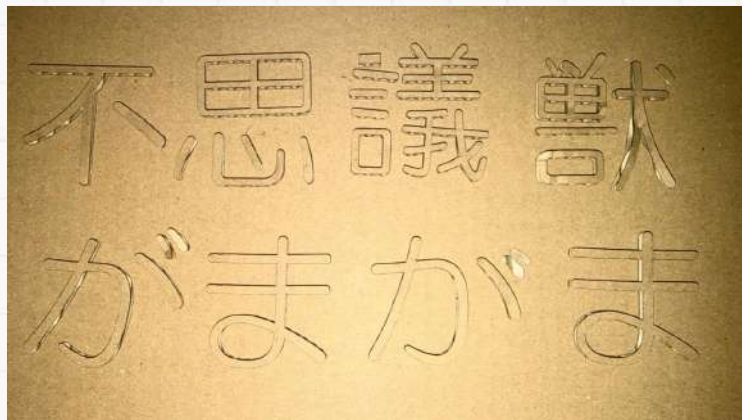 不思議獣
がまがま